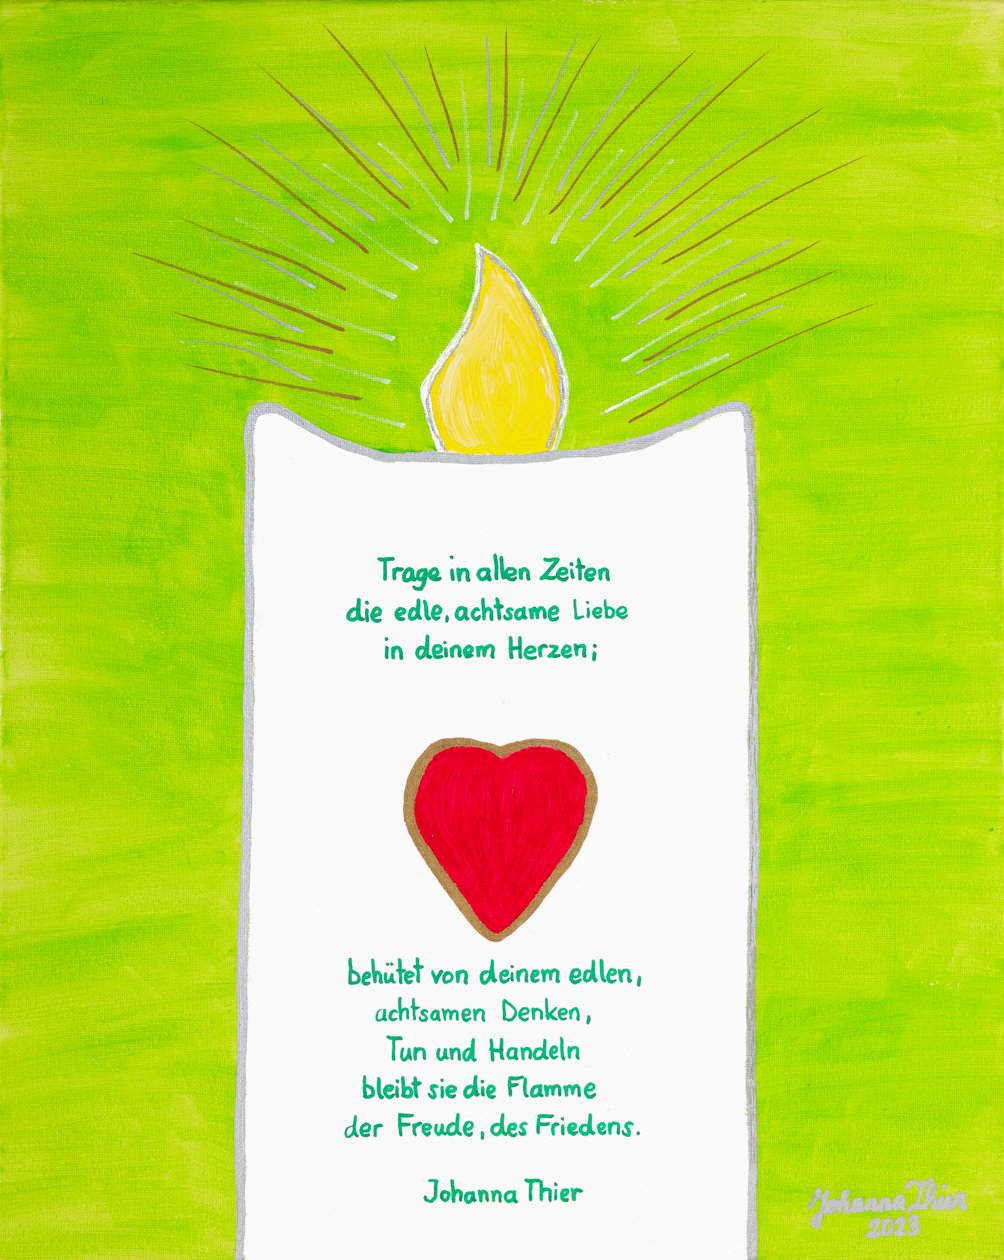 Trage in allen Zeiten
die edle, achtsame Liebe
in deinem Herzen;
behütet von deinem edlen,
achtsamen Denken,
Tun und Handeln
bleibt sie die Flamme
der Freude, des Friedens.
Johanna Thier
Johanna Thier
2023